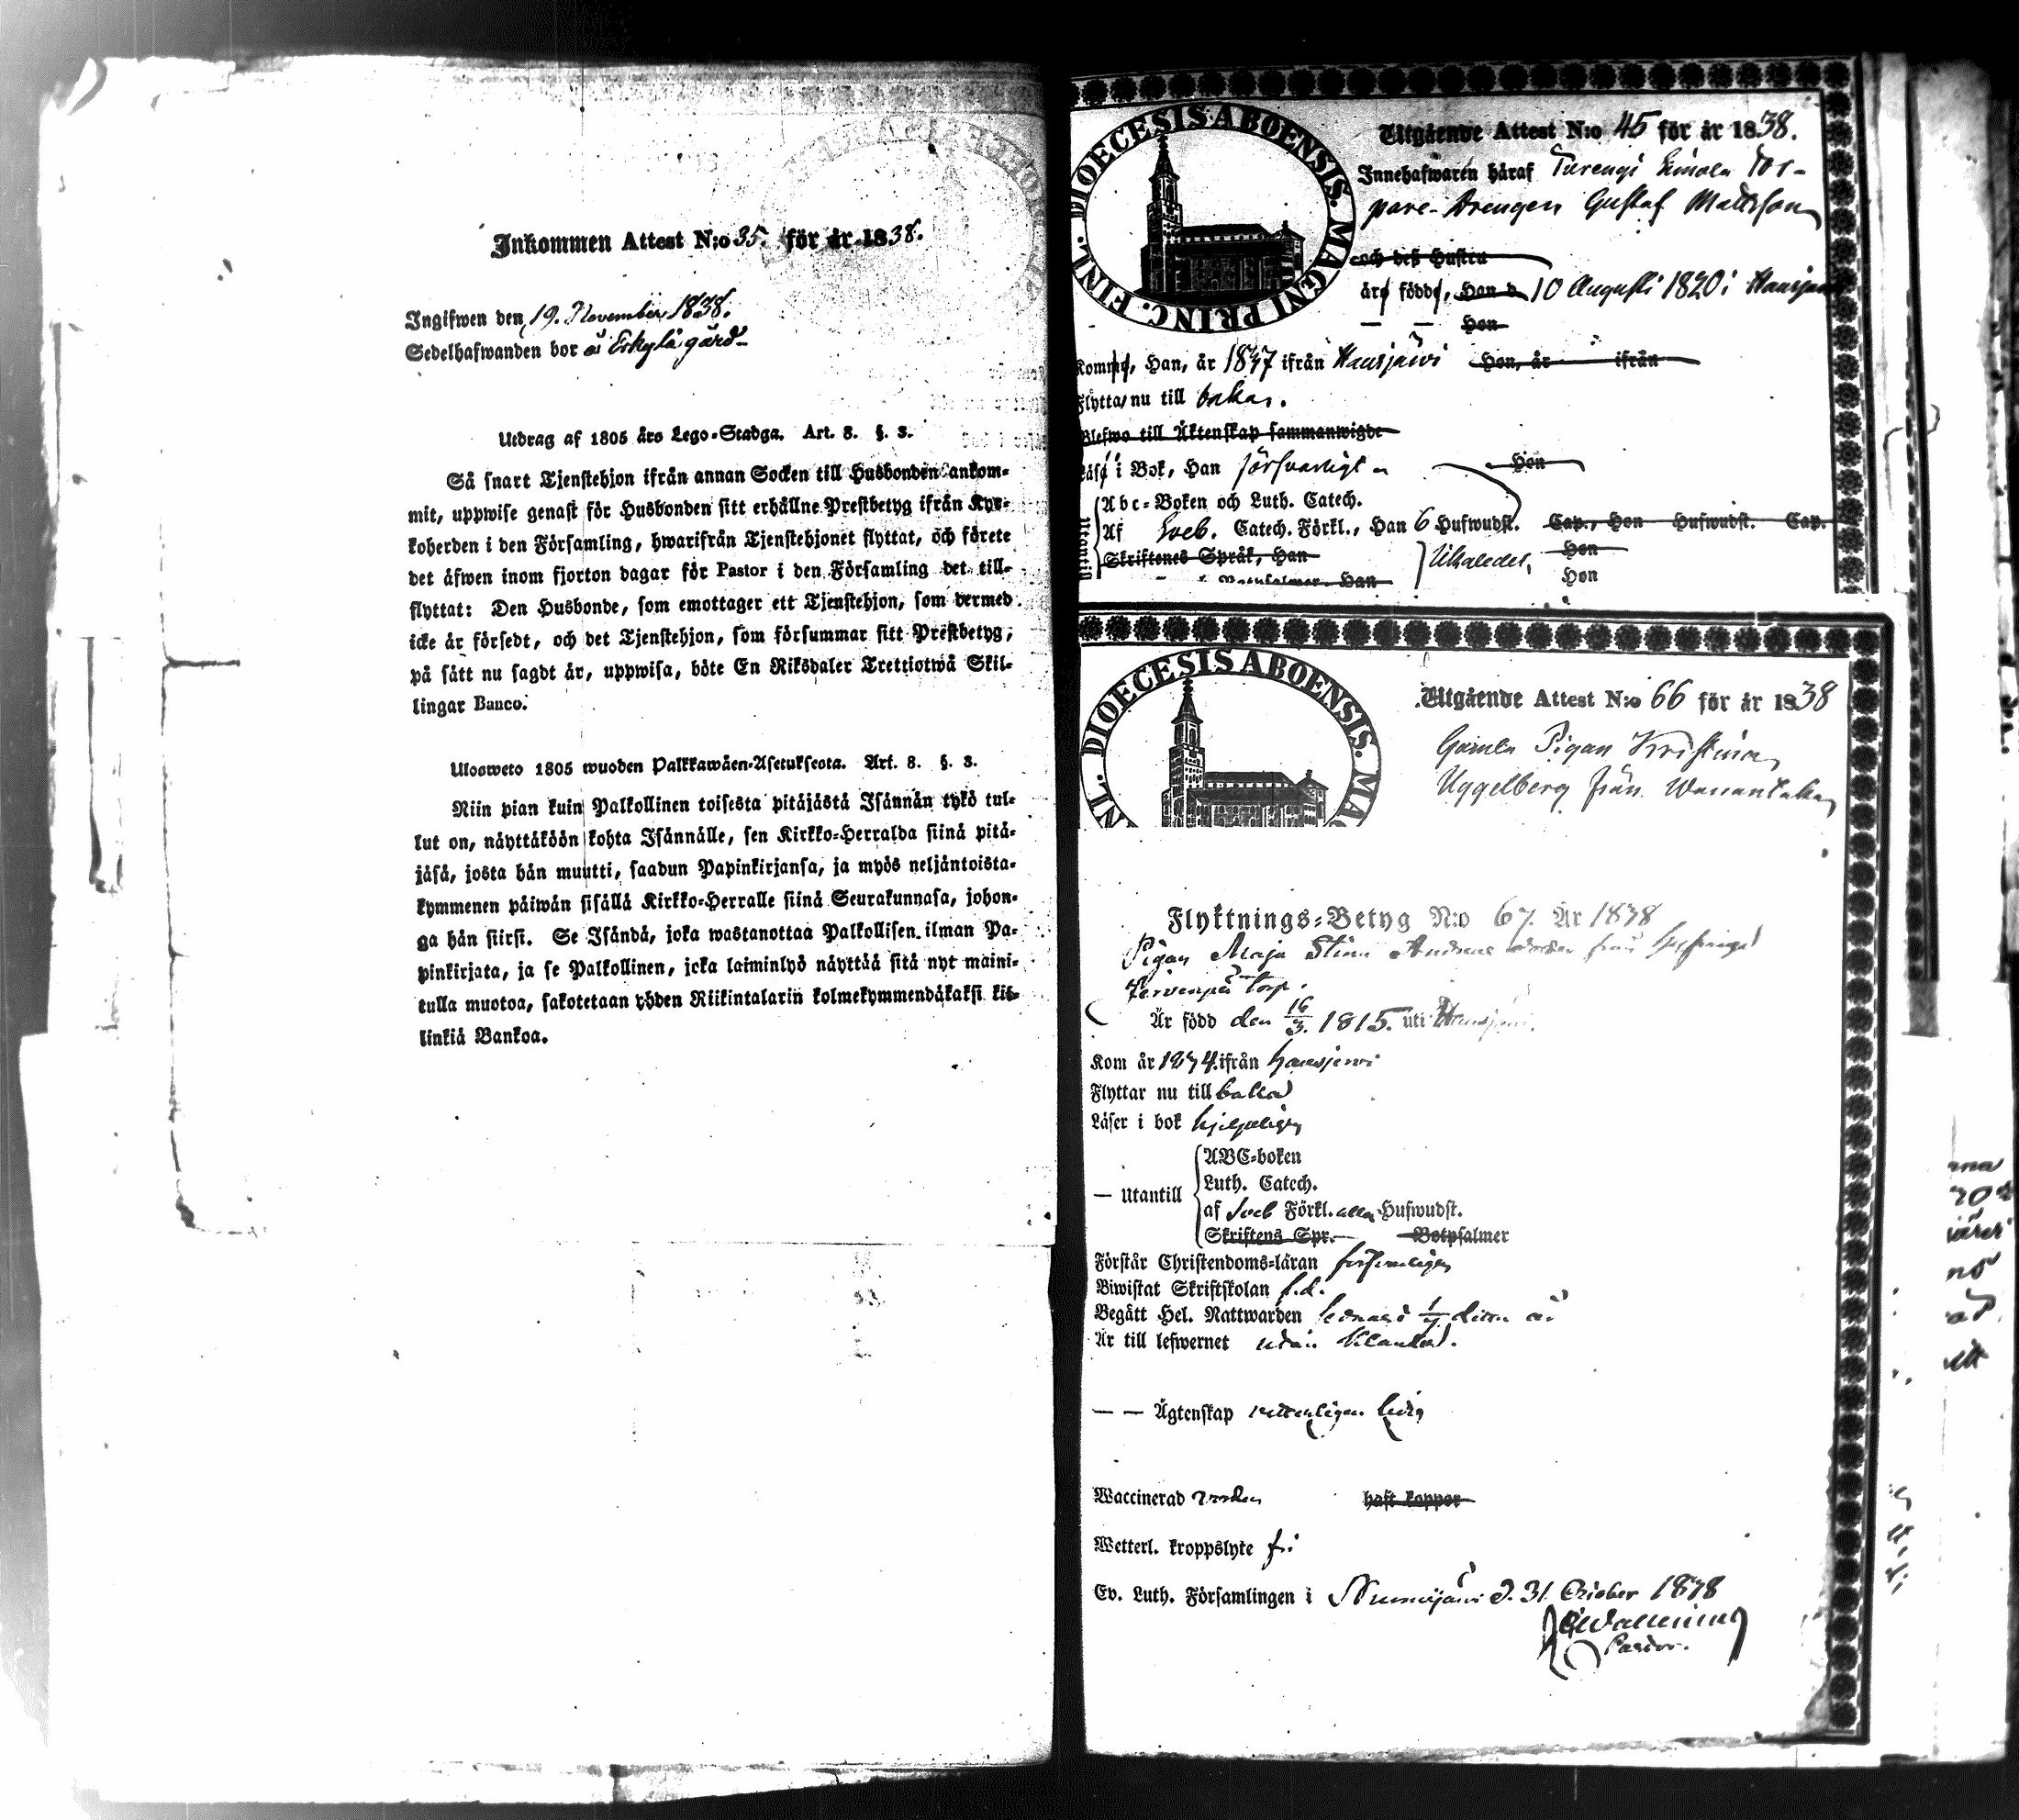 Inkommen Attest N:o 35. för år 1838.
Ingifwen den 19. November 1838.
Sedelhafwanden bor å Erkylä gård
Utdrag af 1805 års Lego-Stadga. Art. 8. §. 3.
Så snart Tjenstehjon ifrån annan Socken till Husbonden ankom-
mit, uppwise genast för Husbonden sitt erhållne Prestbetyg ifrån Kyr-
koherden i den Församling, hwarifrån Tjenstehjonet flyttat, och förete
det äfwen inom fjorton dagar för Pastor i den Församling det till-
flyttat: Den Husbonde, som emottager ett Tjenstehjon, som dermed
icke är försedt, och det Tjenstehjon, som försummar sitt Prestbetyg,
på sätt nu sagdt är, uppwisa, böte En Riksdaler Trettiotwå Skil-
lingar Banco.
Ulosweto 1805 wuoden Palkkawäen-Asetuksesta. Art. 8. §. 3.
Niin pian kuin Palkollinen toisesta pitäjästä Isännän tykö tul-
lut on, näyttäköön kohta Isännälle, sen Kirkko-Herralda siinä pitä-
jäsä, josta hän muutti, saadun Papinkirjansa, ja myös neljäntoista-
kymmenen päiwän sisällä Kirkko-Herralle siinä Seurakunnasa, johon-
ga hän siirsi. Se Isändä, joka wastanottaa Palkollisen ilman Pa-
pinkirjata, ja se Palkollinen, joka laiminlyö näyttää sitä nyt maini-
tulla muotoa, sakotetaan yhden Riikintalarin kolmekymmendäkaksi kil-
linkiä Bankoa.
DIOECESIS ABOENSIS. MAGNI PRINC. FINL.
Utgående Attest N:o 45 för år 1838.
Innehafwaren häraf Turengi Tor-
pare-Drengen Gustaf Mattsson
och deß Hustru
äro födde, Han d 10 Augusti 1820 i Hausjärvi
— — Hon
Komne, Han, år 1837 ifrån Hausjärvi Hon, år ifrån
Flytta nu till bakas.
Blefwo till Äktenskap sammanwigde
Läsa i Bok, Han försvarligt Hon
Utantill
Abc-Boken och Luth. Catech.
Af Sveb. Catech. Förkl., Han 6 Hufwudst. Cap., Hon Hufwudst. Cap.
Skriftenes Språk, Han Hon
Han Hon
DIOECESIS ABOENSIS. MA
NL.
Utgående Attest N:o 66 för år 1838
Gamla Pigan Kristina
Uggelberg från Wanantaka
Flyktnings-Betyg N:o 67. År 1838
Pigan Maja Stina Andersdotter från
Torp.
Är född den 16/3. 1815. uti Hausjärvi.
Kom år 1834. ifrån Hausjervi
Flyttar nu till baka
Läser i bok hjelpeligen
— utantill
ABC-boken
Luth. Catech.
af Sveb Förkl. alla Hufwudst.
Skriftens Spr. Botpsalmer
Förstår Christendoms-läran försvarligen
Biwistat Skriftskolan f.d.
Begått Hel. Nattwarden
Är till lefwernet utan klander.
— — Ägtenskap veterligen ledig
Waccinerad worden haft koppor
Wetterl. kroppslyte fri
Ev. Luth. Församlingen i Nummijärvi d. 31 October 1838
Pastor.